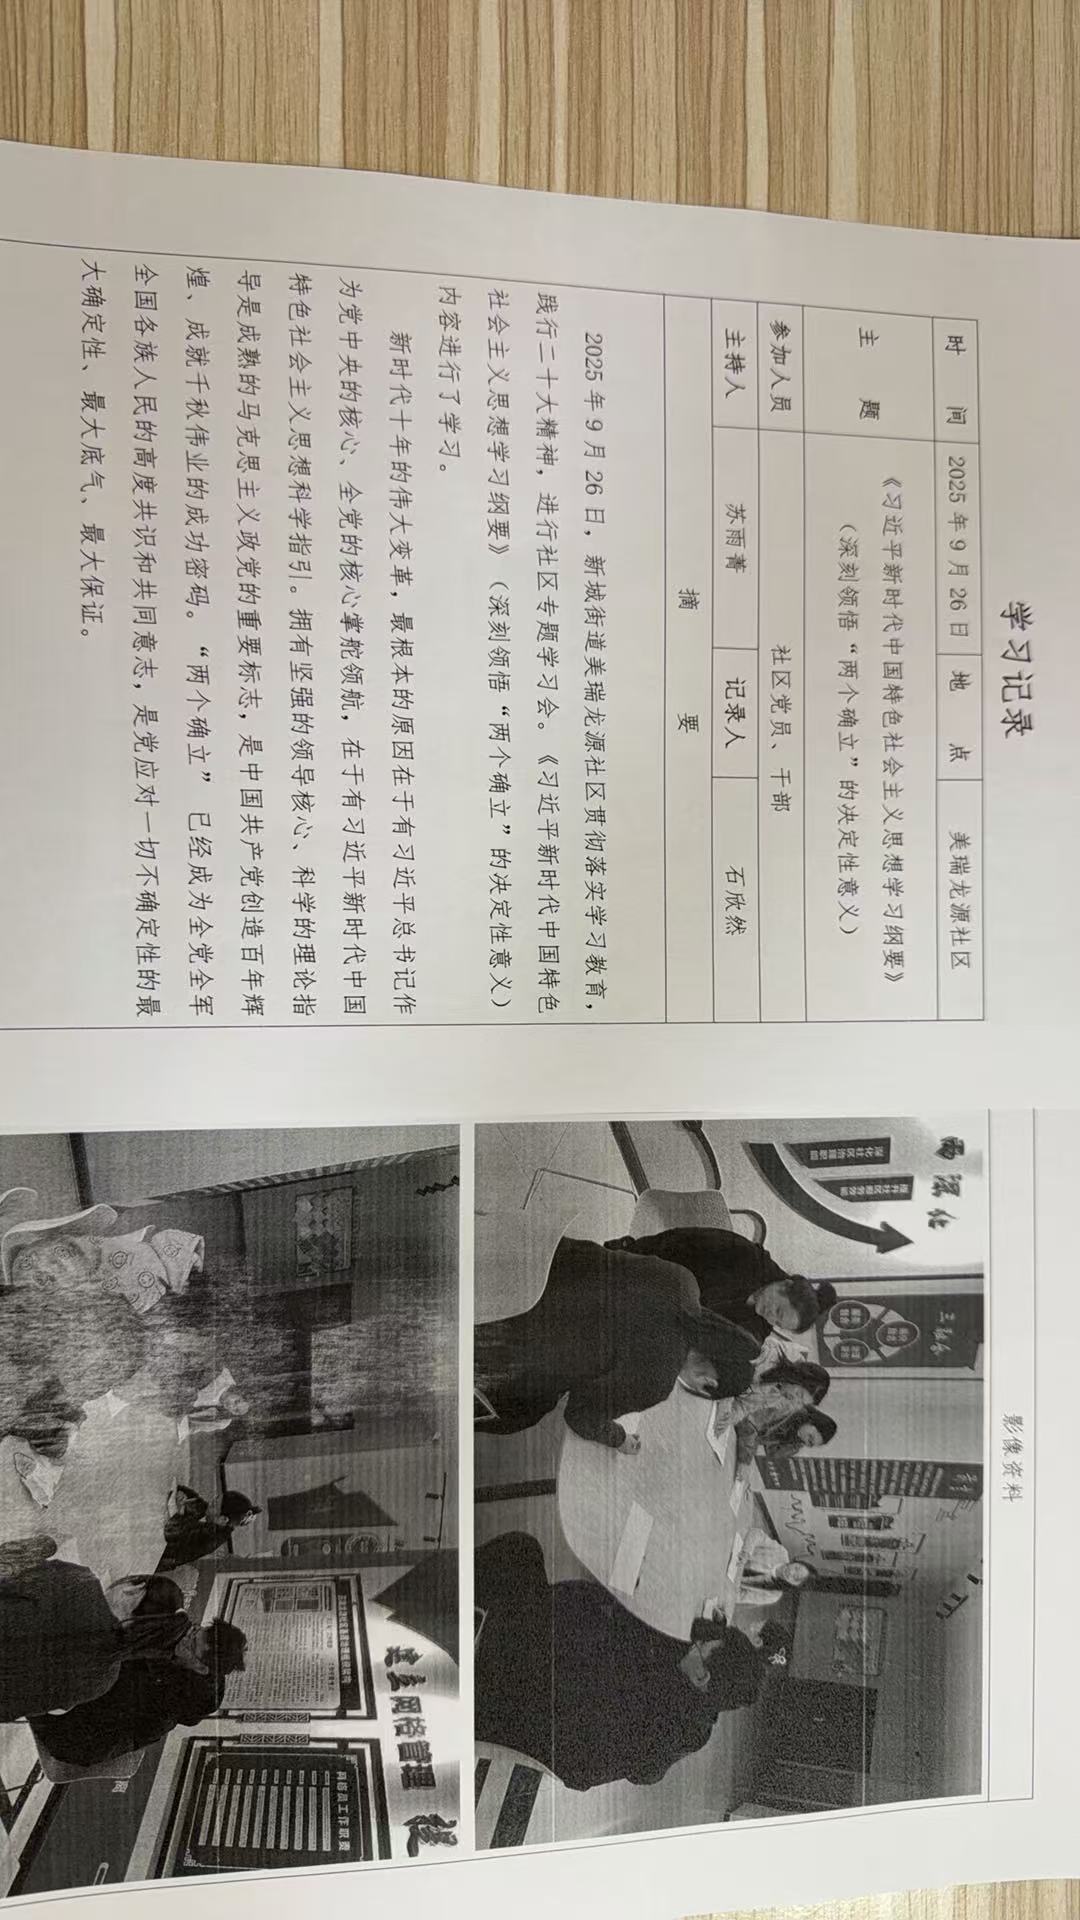 学习记录
时 间 2025年9月26日 地 点 美瑞龙源社区
主 题 《习近平新时代中国特色社会主义思想学习纲要》
（深刻领悟“两个确立”的决定性意义）
参加人员 社区党员、干部
主持人 苏雨菁 记录人 石欣然
摘 要
2025年9月26日，新城街道美瑞龙源社区贯彻落实学习教育，
践行二十大精神，进行社区专题学习会。《习近平新时代中国特色
社会主义思想学习纲要》（深刻领悟“两个确立”的决定性意义）
内容进行了学习。
新时代十年的伟大变革，最根本的原因在于有习近平总书记作
为党中央的核心、全党的核心掌舵领航，在于有习近平新时代中国
特色社会主义思想科学指引。拥有坚强的领导核心、科学的理论指
导是成熟的马克思主义政党的重要标志，是中国共产党创造百年辉
煌、成就千秋伟业的成功密码。“两个确立” 已经成为全党全军
全国各族人民的高度共识和共同意志，是党应对一切不确定性的最
大确定性、最大底气、最大保证。
影像资料
两深化
深化社区治理职能
提升社区服务效能
网格管理
网格员工作职责